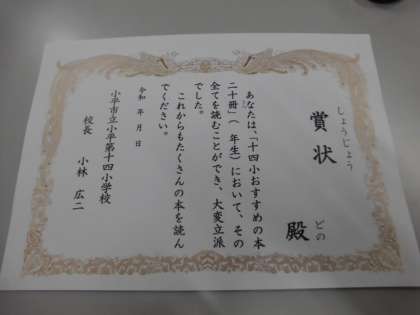 しょうじょう
賞状
どの
殿
あなたは、「十四小おすすめの本
二十冊」(　年生)において、その
全てを読むことができ、大変立派
でした。
これからもたくさんの本を読ん
でください。
令和　年　月　日
小平市立小平第十四小学校
校長　小林　広二